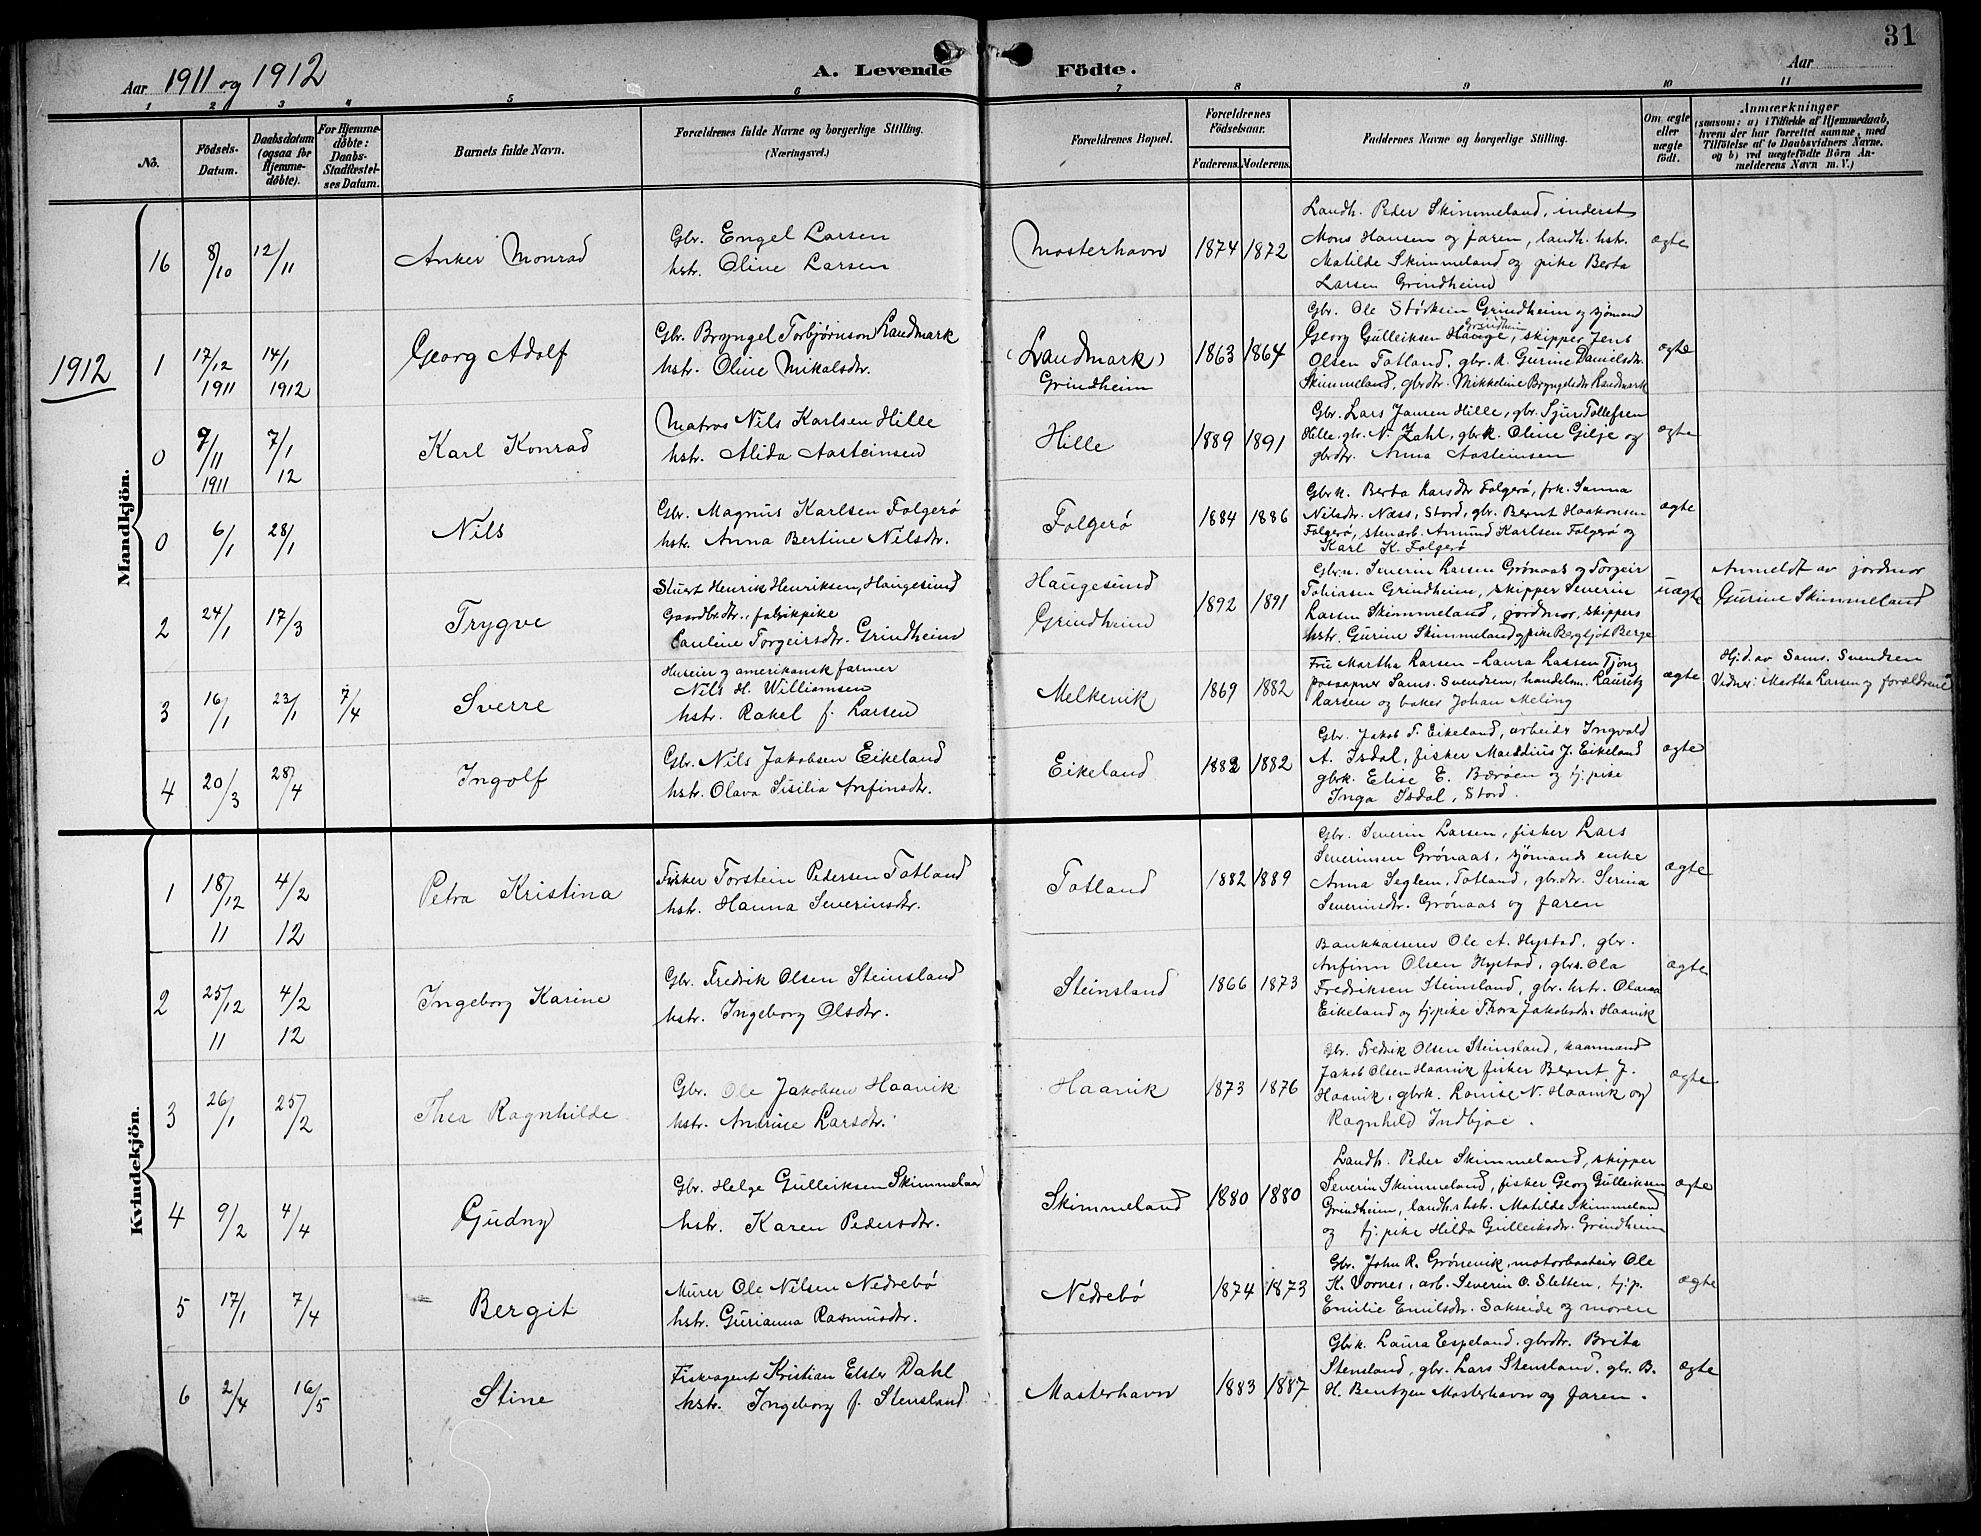 31
Aar 1911 og 1912
A. Levende Födte.
Aar
1 2 3 4 5 6 7 8 9 10 11
No.
Födsels-Datum.
Daabsdatum (ogsaa for Hjemme-döbte).
For Hjemme-döbte: Daabs-Stadfæstel-ses Datum.
Barnets fulde Navn.
Forældrenes fulde Navne og borgerlige Stilling. (Næringsvei.)
Forældrenes Bopæl.
Forældrenes Födselsaar.
Faderens. Moderens.
Faddernes Navne og borgerlige Stilling.
Om ægte eller uægte født.
Anmærkninger
(saasom: a) i Tilfælde af Hjemmedaab, hvem der har forrettet samme, med Tilföielse af to Daabsvidners Navne. og b) ved uægtefödte Börn An-melderens Navn m. V.)
Mandkjön.
16 8/10 12/11 Anker Monrad
Gbr. Engel Larsen
hstr. Oline Larsen
Mosterhavn 1874 1872
Landh. Peder Skimmeland, inderst
Mons Hansen og faren, landh. hstr.
Matilde Skimmeland og pike Berta
Larsen Grindheim
ægte
1912
1 17/12 1911 14/1 1912 Georg Adolf
Gbr. Bryngel Torbjørnson Landmark
hstr. Oline Mikalsdtr.
(Landmark)
Grindheim
1863 1864
Gbr. Ole Størksen Grindheim og sjömand
Georg Gulleiksen Hauge, Grindheim skipper Jens
Olsen Totland, gbr. k. Gurine Danielsdtr.
Skimmeland, gbrdtr. Mikkeline Bryngelsdtr Landmark
ægte
0 9/11 1911 7/1 12 Karl Konrad
Matros Nils Karlsen Hille
hstr. Alida Aasteinsen
Hille 1889 1891
Gbr. Lars Jansen Hille, gbr. Sjur Tollefsen
Hille, gbr. N. Zahl, gbrk. Oline Gilje og
gbrdtr. Anna Aasteinsen
ægte
0 6/1 28/1 Nils
Gbr. Magnus Karlsen Folgerø
hstr. Anna Bertine Nilsdtr.
Folgerø 1884 1886
Gbrk. Berta Larsdtr Folgerø, frk. Sanna
Nilsdtr. Næss, Stord, gbr. Bernt Haakonsen
Folgerø, stenarb. Amund Karlsen Folgerø og
Karl K. Folgerø
ægte
2 24/1 17/3 Trygve
Stuert Henrik Henriksen, Haugesund
Gaardbr.dtr., fabrikpike
Pauline Torgeirsdtr. Grindheim
Haugesund
Grindheim
1892 1891
Gbr.n. Severin Larsen Grønaas og Torgeir
Tobiasen Grindheim, skipper Severin
Larsen Skimmeland, jordmor, skippers
hstr. Gurine Skimmeland og pike Bergljot Berge
uægte
Anmeldt av jordmor
Gurine Skimmeland
3 16/1 23/1 7/4 Sverre
Huseier og amerikansk farmer
Nils H. Williamsen
hstr. Rakel f. Larsen
Melkevik 1869 1882
Fru Martha Larsen - Laura Lassen Tjong
poståpner Sams. Svendsen, handelsm. Lauritz
Larsen og baker Johan Meling
ægte
Hj.d. av Sams. Svendsen
Vidner: Martha Larsen og forældrene
4 20/3 28/4 Ingolf
Gbr. Nils Jakobsen Eikeland
hstr. Olava Sisilia Anfinsdtr.
Eikeland 1882 1882
Gbr. Jakob T. Eikeland, arbeider Ingvald
A. Isdal, fisker J. Eikeland
gbrk. Elise E. Bærøen og tj. pike
Inga Isdal, Stord.
ægte
Kvindekjön.
1 18/12 11 4/2 12 Petra Kristina
Fisker Torstein Pedersen Totland
hstr. Hanna Severinsdtr.
Totland 1882 1889
Gbr. Severin Larsen, fisker Lars
Severinsen Grønaas, sjömands enke
Anna Seglem, Totland, gbrdtr. Serina
Severinsdtr. Grønaas og faren
ægte
2 25/12 11 4/2 12 Ingeborg Karine
Gbr. Fredrik Olsen Steinsland
hstr. Ingeborg Olsdtr.
Steinsland 1866 1873
Bankkasserer Ole A. Hystad, gbr.
Anfinn Olsen Hystad, gbrs. Ola
Fredriksen Steinsland, gbr. hstr. Olava
Eikeland og tj.pike Thora Jakobsdtr. Haavik
ægte
3 26/1 25/2 Thea Ragnhilde
Gbr. Ole Jakobsen Haavik
hstr. Andrine Larsdtr.
Haavik 1873 1876
Gbr. Fredrik Olsen Steinsland, kaarmand
Jakob Olsen Haavik fisker Bernt J.
Haavik, gbrk. Lovise N. Haavik og
Ragnhild Indbjoe.
ægte
4 9/2 4/4 Gudny
Gbr. Helge Gulleiksen Skimmeland
hstr. Karen Pedersdtr.
Skimmeland 1880 1880
Landh. Peder Skimmeland, skipper
Severin Skimmeland, fisker Georg Gulleiksen
Grindheim, landh.s hstr. Matilde Skimmeland
og tj. pike Hilda Gulleiksdtr. Grindheim
ægte
5 17/1 7/4 Bergit
Murer Ole Nilsen Nedrebø
hstr. Gurianna Rasmusdtr.
Nedrebø 1874 1873
Gbr. John R. Grønevik, Ole
K. Vornes, arb. Severin O. Sletten, tj.p.
Emilie Emilsdtr. Sakseide og moren
ægte
6 2/4 16/5 Stine
Fiskeagent Kristian Elster Dahl
hstr. Ingeborg f. Stensland
Mosterhavn 1883 1887
Gbrk. Laura Espeland, gbrdtr. Brita
Stensland, gbr. Lars Stensland, gbr. B.
H. Bentzen Mosterhavn og faren.
ægte